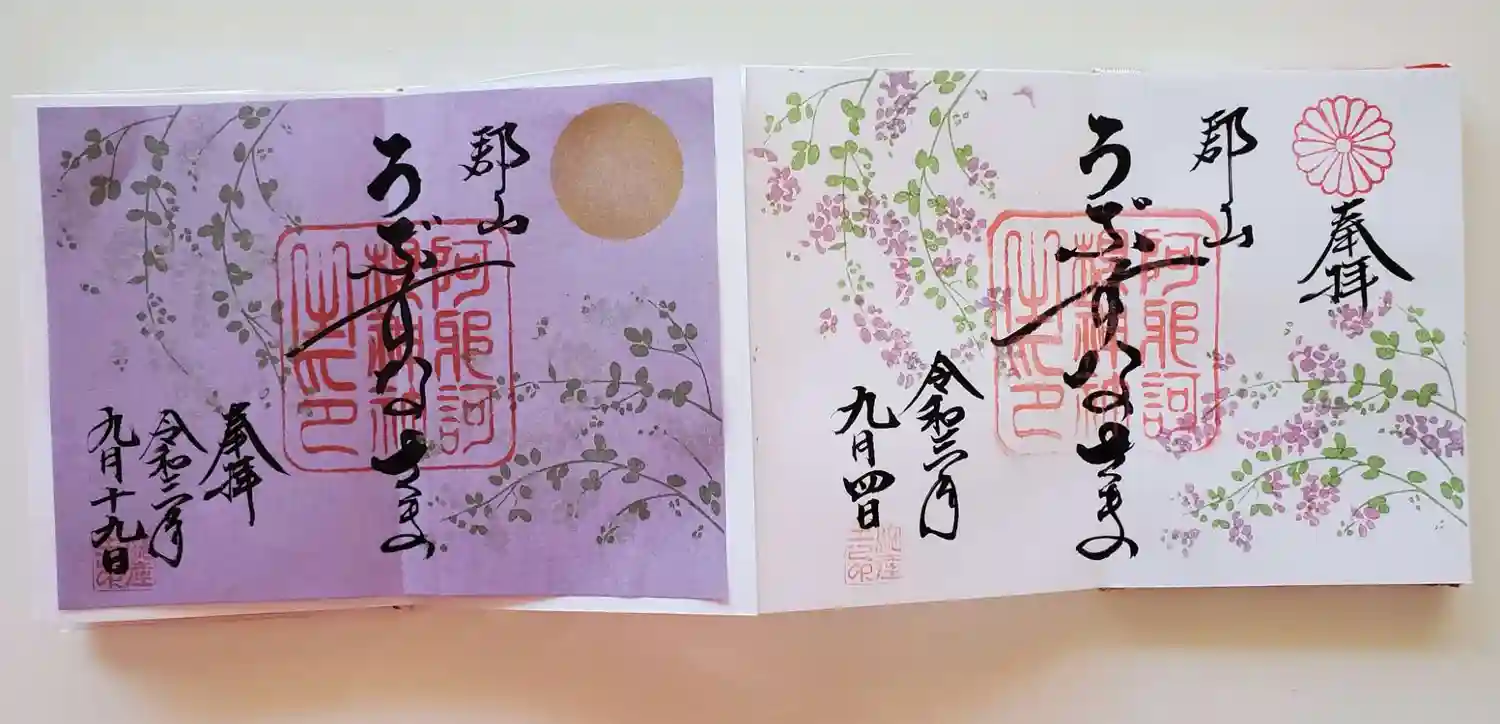 奉拝
郡山
うぶすなさま
阿邪訶
根神社
之印
令和三年
九月四日
郡山
うぶすなさま
阿邪訶
根神社
之印
奉拝
令和三年
九月十九日